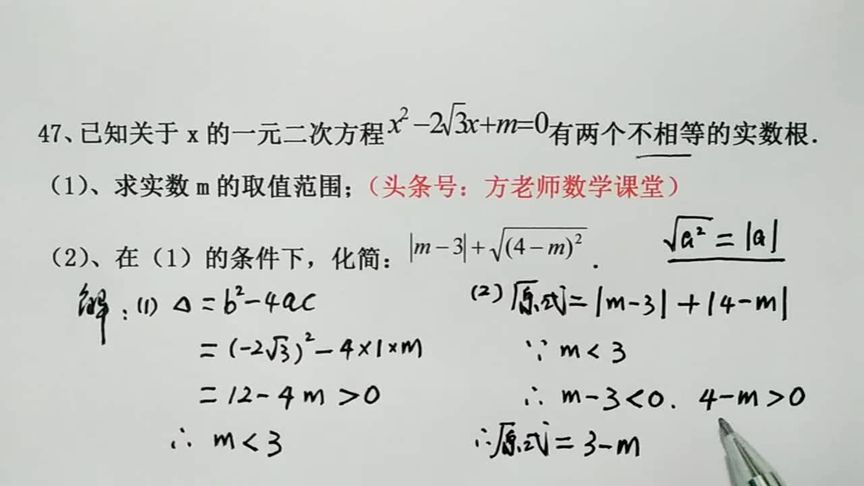 47、已知关于 x 的一元二次方程x²−2√3x+m=0有两个不相等的实数根.
(1)、求实数 m 的取值范围;(头条号：方老师数学课堂)
(2)、在（1）的条件下，化简：|m−3|+√(4−m)².
√a² = |a|
解：(1) Δ = b²−4ac
= (−2√3)²−4×1×m
= 12−4m>0
∴ m<3
(2) 原式 = |m−3|+|4−m|
∵ m<3
∴ m−3<0. 4−m>0
∴原式 = 3−m